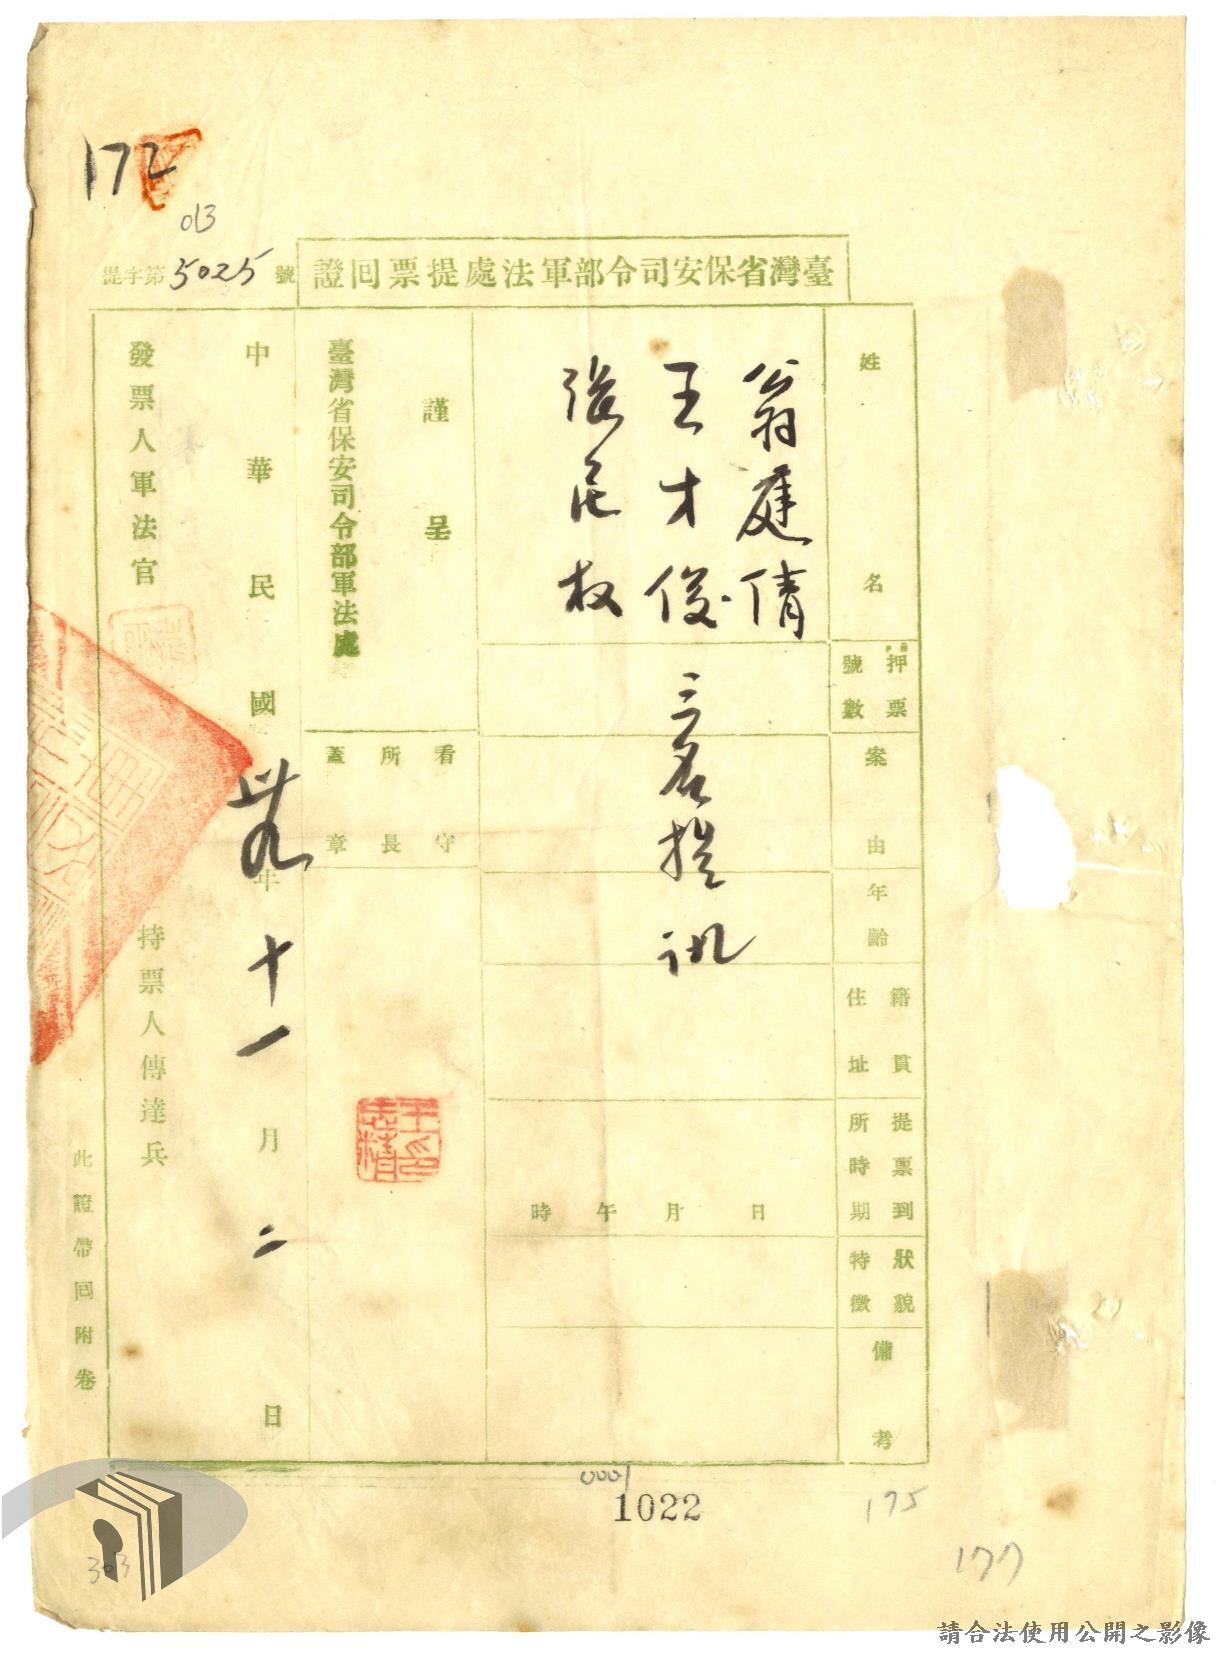 172
013
提字第5025號
臺灣省保安司令部軍法處提票回證
姓名
翁庭倩
王才俊
張民权
三名提訊
押票號數
案由
年齡
籍貫住址
提票到所時期
日月午時
狀貌特徵
備考
謹呈
臺灣省保安司令部軍法處
看守所長蓋章
中華民國卅九年十一月二日
發票人軍法官
持票人傳達兵
此證帶回附卷
0001
1022
175
177
303
請合法使用公開之影像